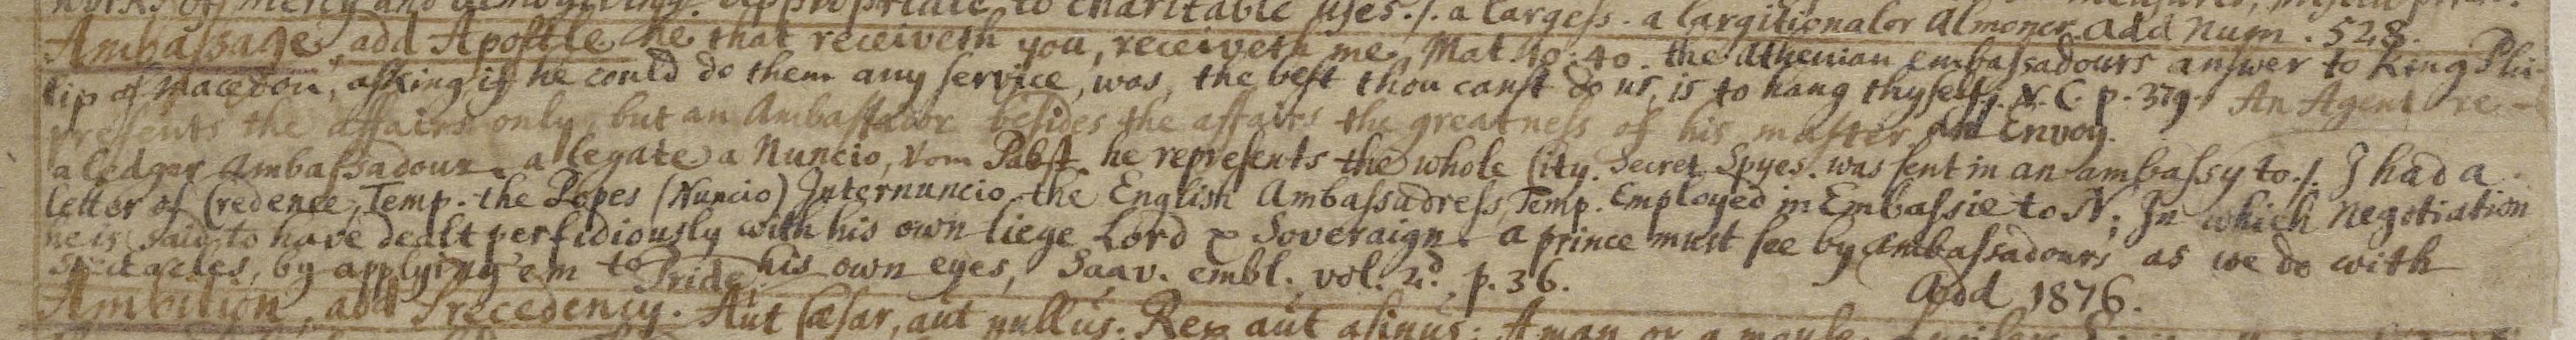 works of mercy and almsgiving. Appropriate to charitable uses ./. a largess. a largitional or Almoner. add Num. 528.
Ambassage, add Apostle he that receiveth you, receiveth me, Mat. 10:40. the Athenian embassadours answer to King Phi-
lip of Macedon, asking if he could do them any service, was, the best thou canst do us, is to hang thyself. N. C. p. 379. An Agent re-
presents the affairs only, but an Ambassador besides the affairs the greatness of his master. An Envoy.
a ledger Ambassadour. a legate a Nuncio, vom Pabst. he represents the whole City. Secret Spyes. was sent in an ambassy to ./. I had a
letter of Credence, Temp. the Popes (Nuncio) Internuncio. the English Ambassadress, Temp. Employed in Embassie to N; In which Negotiation
he is said to have dealt perfidiously with his own liege Lord & Soveraign. a prince must see by Ambassadours as we do with
spectacles, by applying em to his own eyes, Saav. embl. vol. 2d, p. 36. Add 1876.
Ambition, add Precedency. Pride. Aut Cæsar, aut nullus. Rex aut asinus. A man or a mouse.